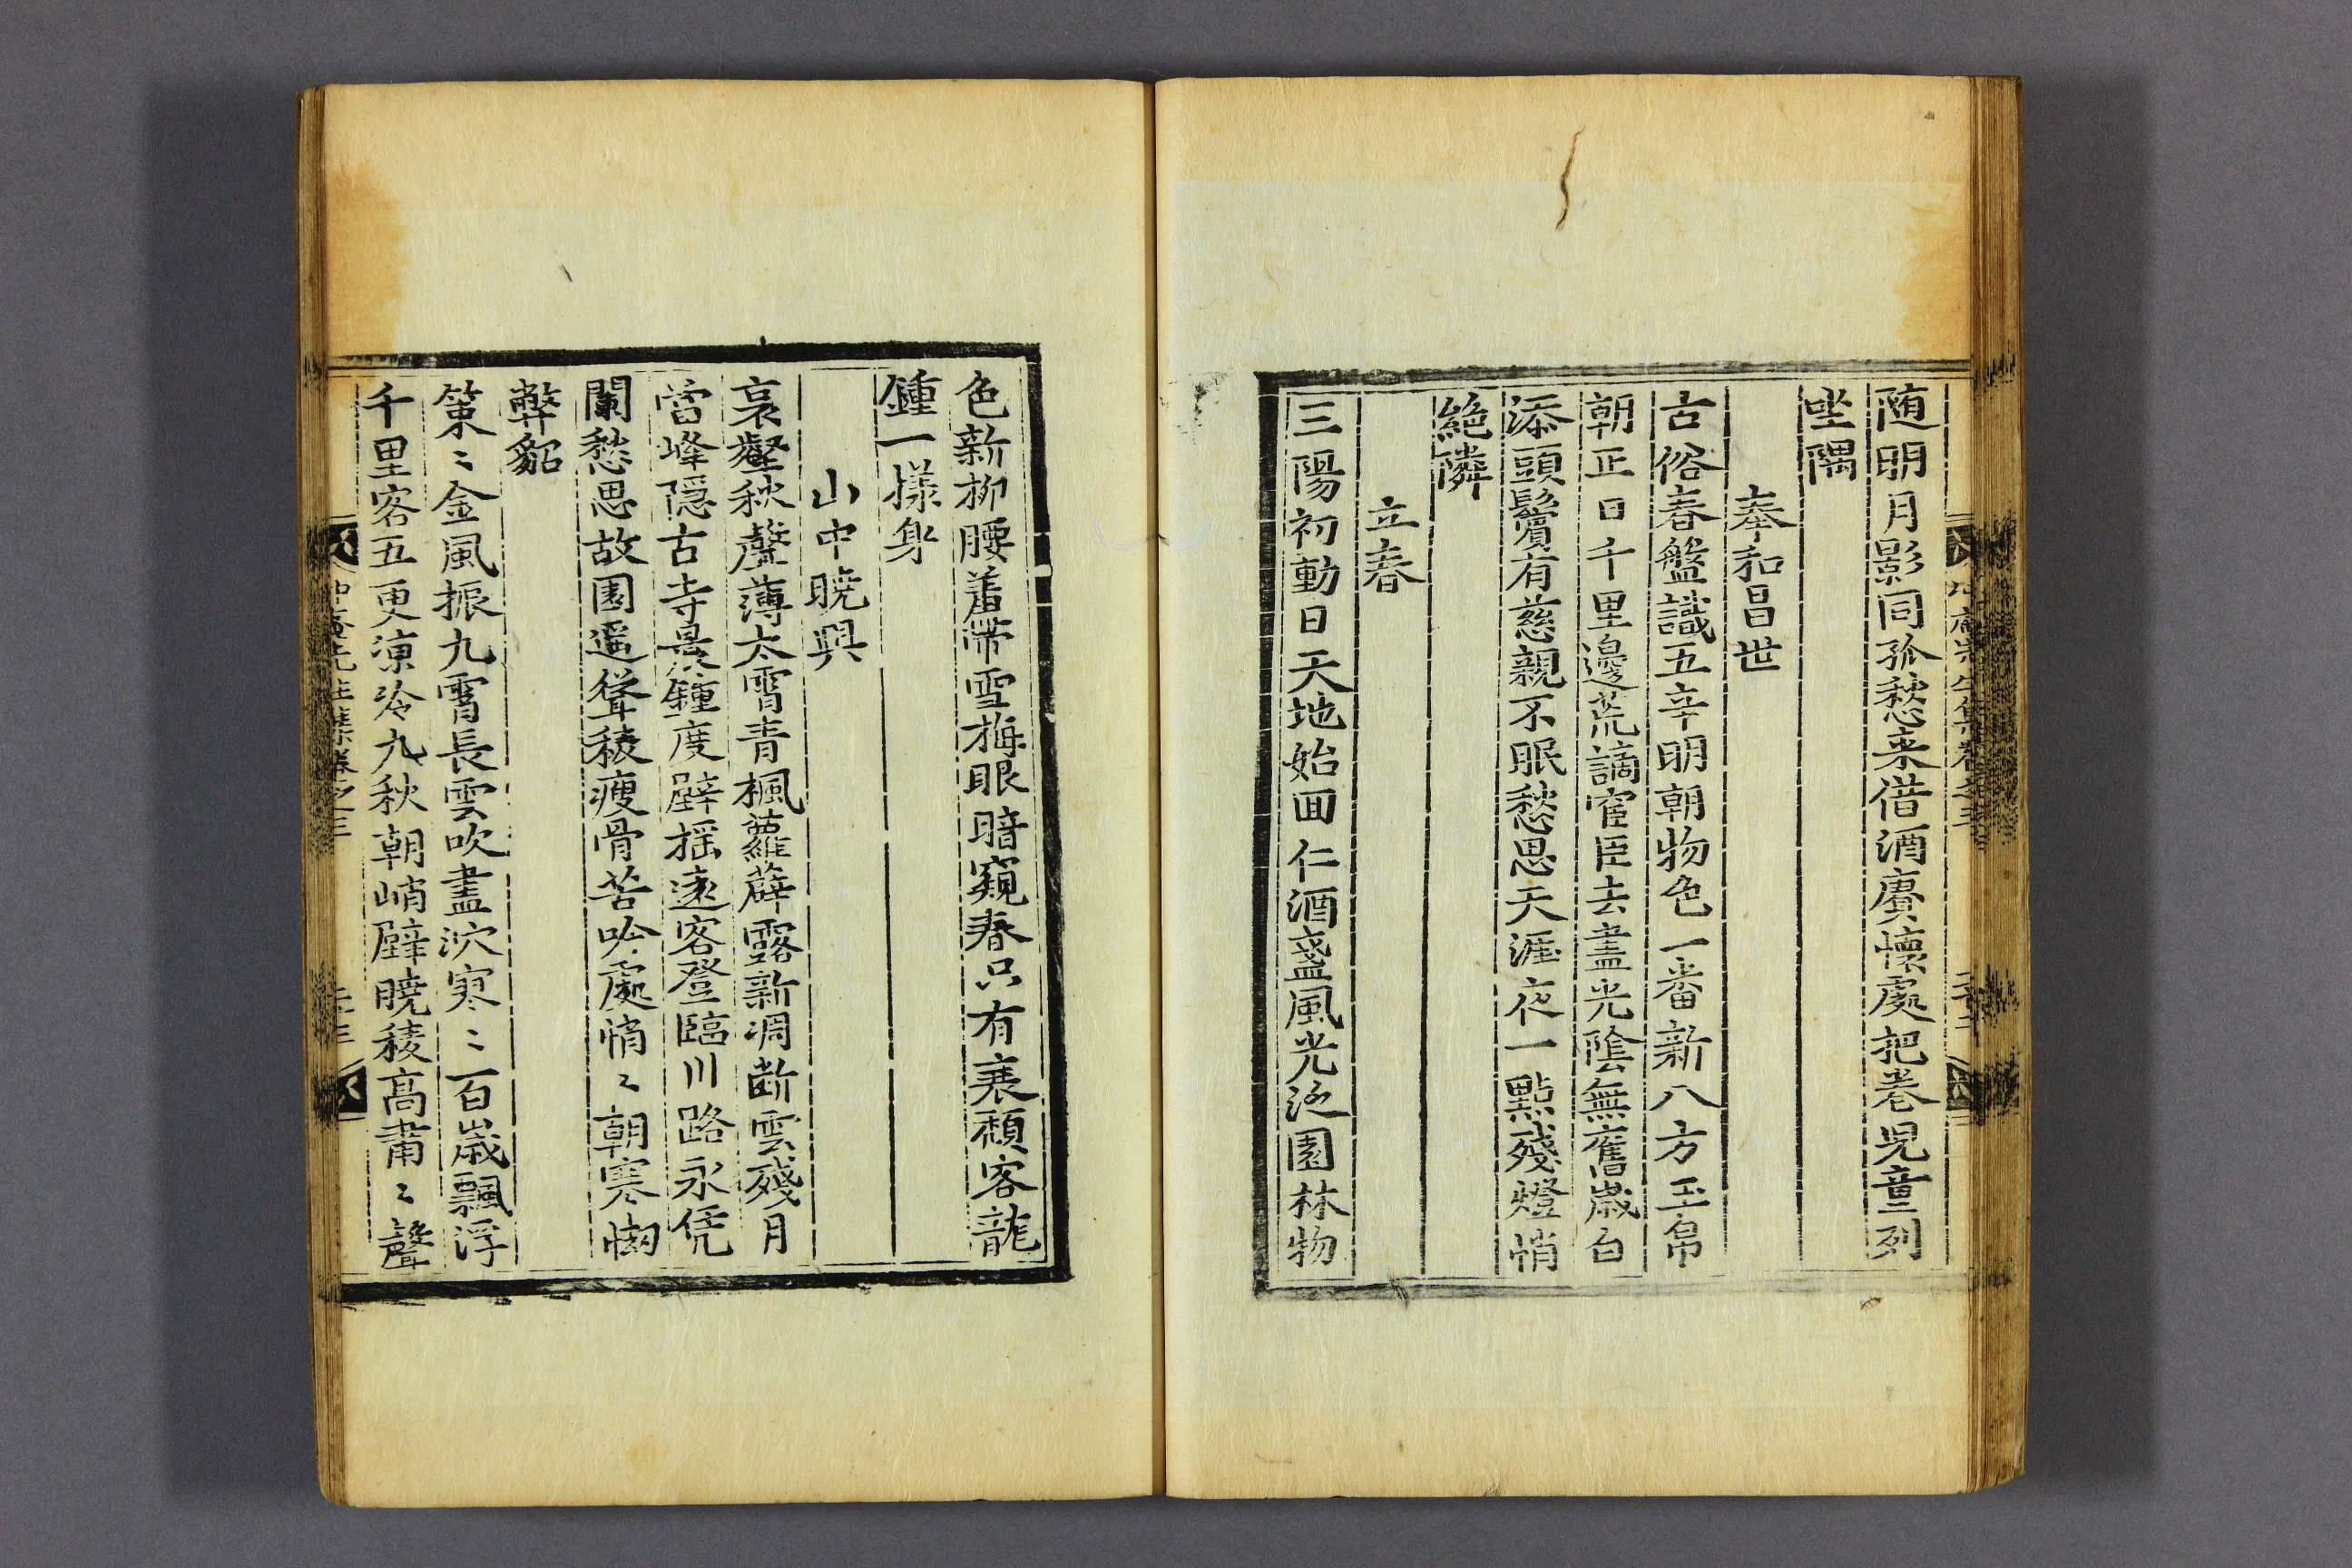 随明月影同孤愁来借酒賡懷處把卷兒童列
坐隅
奉和昌世
古俗春盤識五辛明朝物色一番新八方玉帛
朝正日千里邊荒謫宦臣去盡光陰無舊歲白
添頭鬢有慈親不眠愁思天涯夜一點殘燈悄
絶隣
立春
三陽初動日天地始回仁酒盞風光泛園林物
色新柳腰羞帶雪梅眼暗窺春只有衰頹客龍
鍾一樣身
山中曉興
哀壑秋聲薄太霄青楓蘿薜露新凋断雲殘月
當峰隱古寺晨鍾度壁搖遠客登臨川路永凭
闌愁思故園遥聳稜瘦骨苦吟處悄〻朝寒惻
弊貂
策〻金風振九霄長雲吹盡泬寥〻百歲飄浮
千里客五更凉冷九秋朝峭壁曉稜高肅〻聲
冲庵先生集卷之三